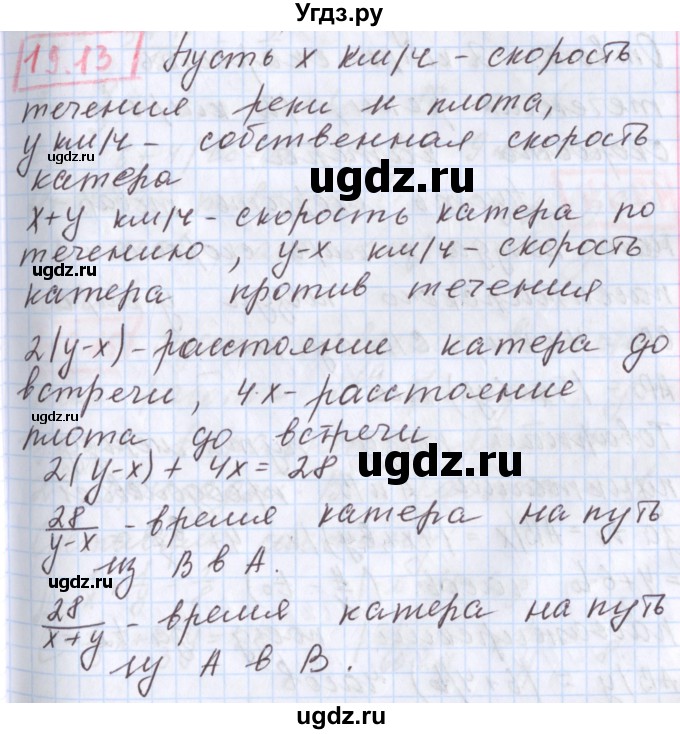 Угдз.ру
19.13 Пусть x км/ч - скорость
течения реки и плота,
y км/ч - собственная скорость
катера
x+y км/ч - скорость катера по
течению, y-x км/ч - скорость
катера против течения
2(y-x) - расстояние катера до
встречи, 4·x - расстояние
плота до встречи
2(y-x) + 4x = 28
28/(y-x) - время катера на путь
из B в A.
28/(x+y) - время катера на путь
из A в B.
ugdz.ru
ugdz.ru
ugdz.ru
ugdz.ru
ugdz.ru
ugdz.ru
ugdz.ru
ugdz.ru
ugdz.ru